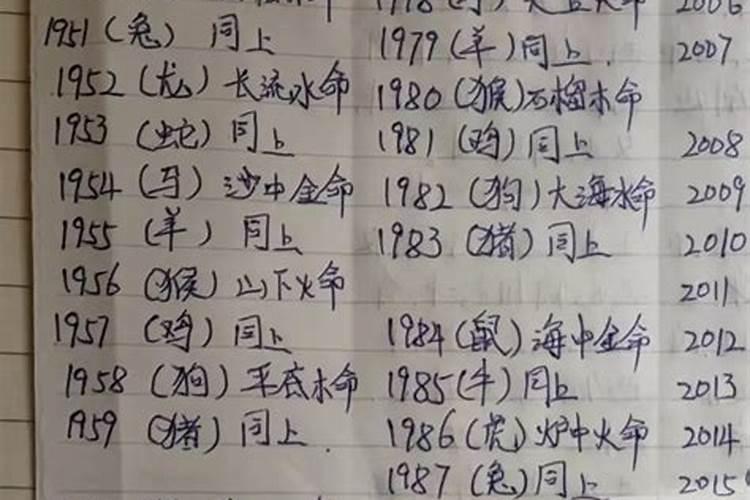 1951(兔) 同上 1979(羊)同上. 2007
1952(龙)长流水命 1980(猴)石榴木命
1953(蛇)同上 1981(鸡)同上 2008
1954(马)沙中金命 1982(狗)大海水命 2009
1955(羊)同上 1983(猪)同上 2010
1956(猴)山下火命 2011
1957(鸡)同上 1984(鼠)海中金命 2012
1958(狗)平底木命 1985(牛)同上 2013
1959(猪)同上. 1986(虎)炉中火命 2014
1987(兔)同上 2015